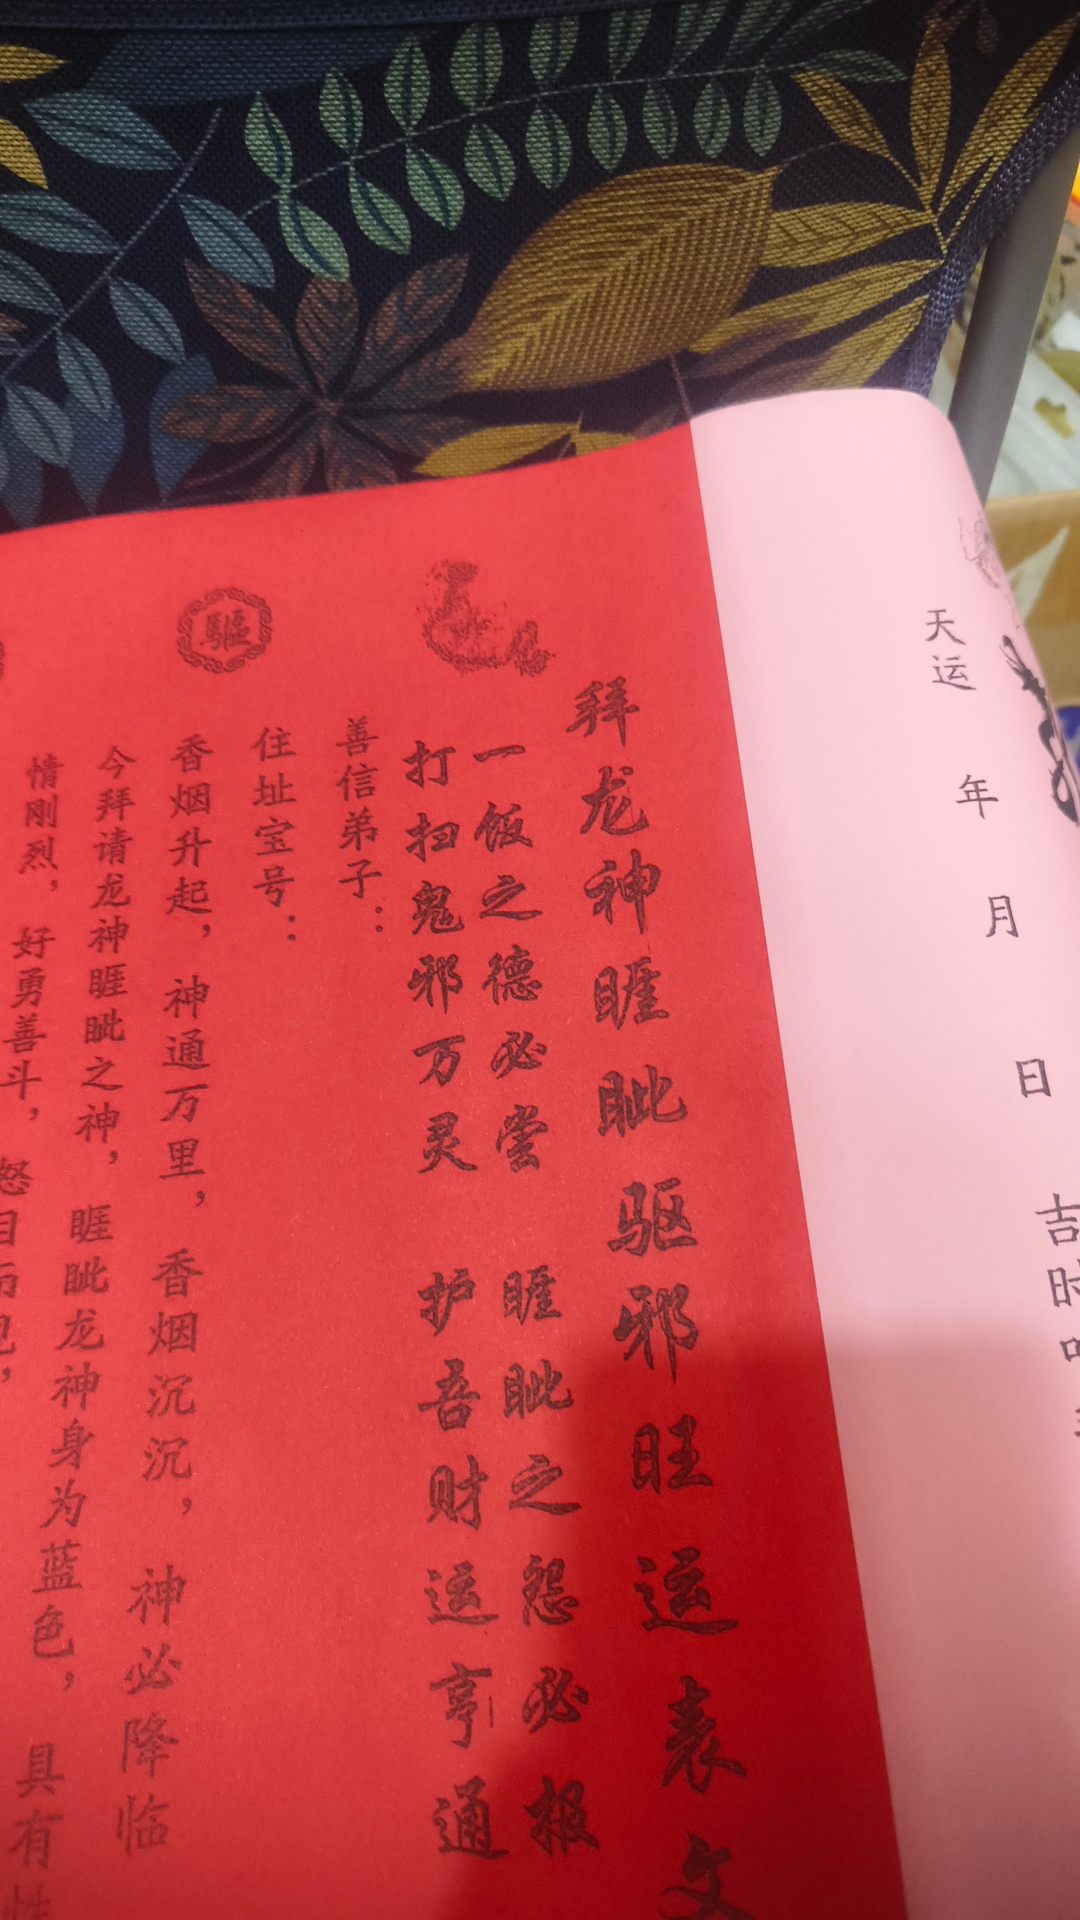 天运 年 月 日 吉时
拜龙神睚眦驱邪旺运表文
一饭之德必尝 睚眦之怨必报
打扫鬼邪万灵 护吾财运亨通
善信弟子：
住址宝号：
驅
香烟升起，神通万里，香烟沉沉，神必降临
今拜请龙神睚眦之神，睚眦龙神身为蓝色，具有性
情刚烈，好勇善斗，怒目而视，